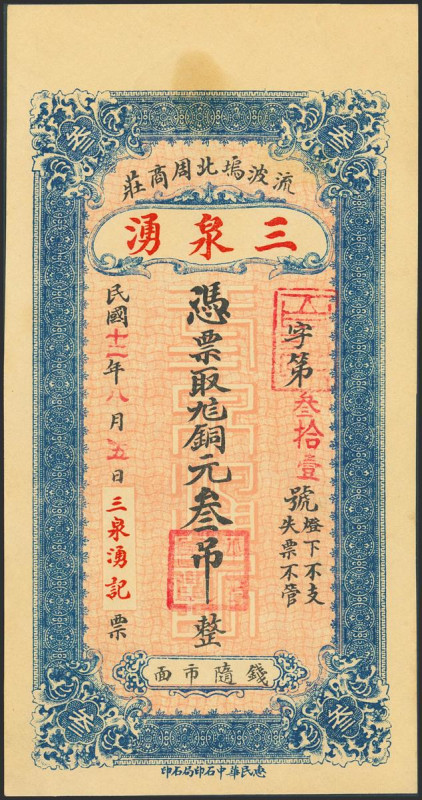 流波塢北周商莊
三泉湧
字第叁拾壹號
燈下不支
失票不管
憑票取九銅元叁吊整
民國十一年八月五日三泉湧記票
錢隨市面
惠民華中石印局石印